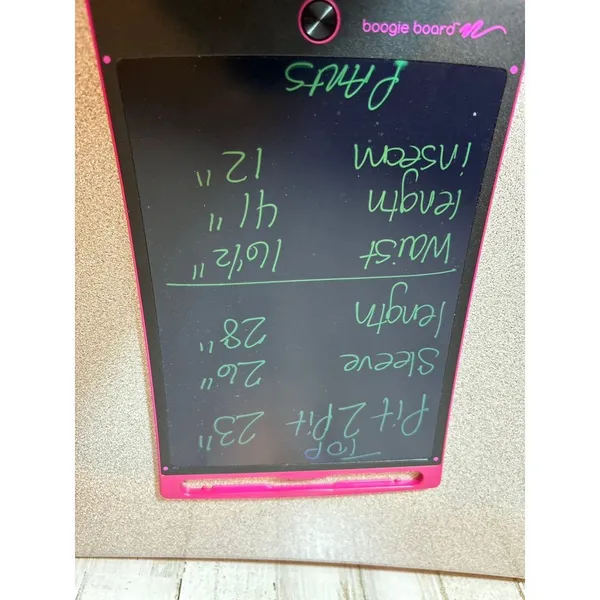 boogie board
TOP
Pit 2 Pit 23"
Sleeve 26"
length 28"
Waist 16 1/2"
length 41"
inseam 12"
PANTS